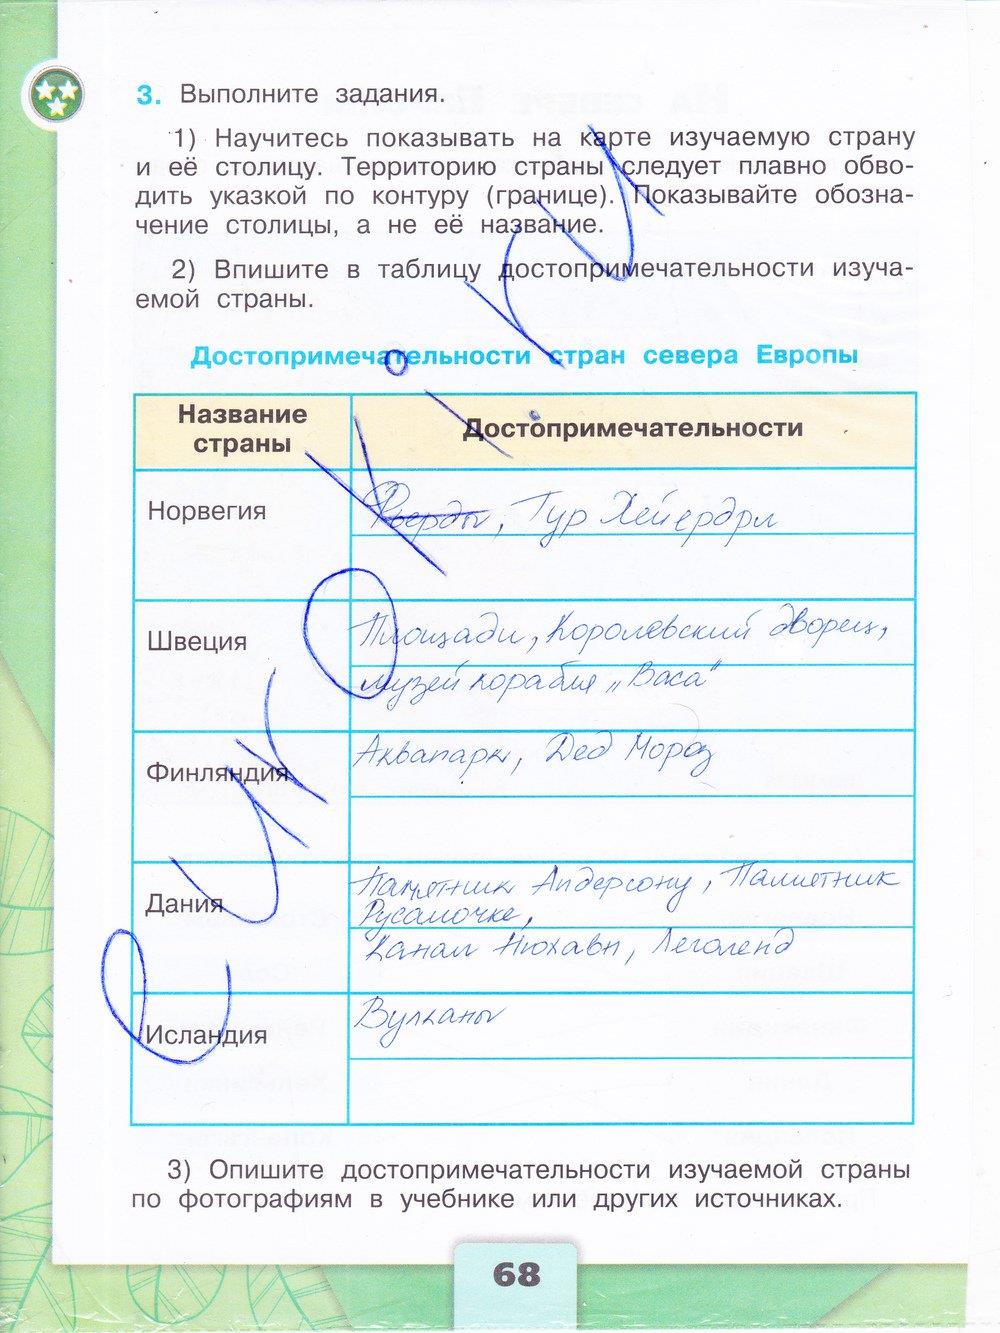 3. Выполните задания.
1) Научитесь показывать на карте изучаемую страну
и её столицу. Территорию страны следует плавно обво-
дить указкой по контуру (границе). Показывайте обозна-
чение столицы, а не её название.
2) Впишите в таблицу достопримечательности изуча-
емой страны.
Достопримечательности стран севера Европы
Название
страны
Достопримечательности
Норвегия
Фьерды, Тур Хейердрл
Швеция
Площади, Королевский дворец,
музей корабля „Васа"
Финляндия
Аквапарк, Дед Мороз
Дания
Памятник Андерсону, Памятник
Русалочке,
канал Нюхавн, Леголенд
Исландия
Вулканы
3) Опишите достопримечательности изучаемой страны
по фотографиям в учебнике или других источниках.
68